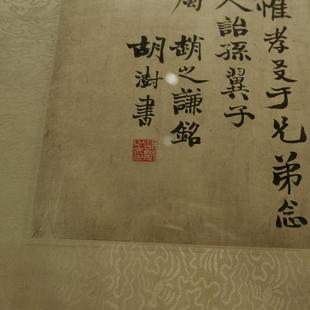 惟孝友于兄弟念
人詒孫翼子
趙之謙銘
胡澍書